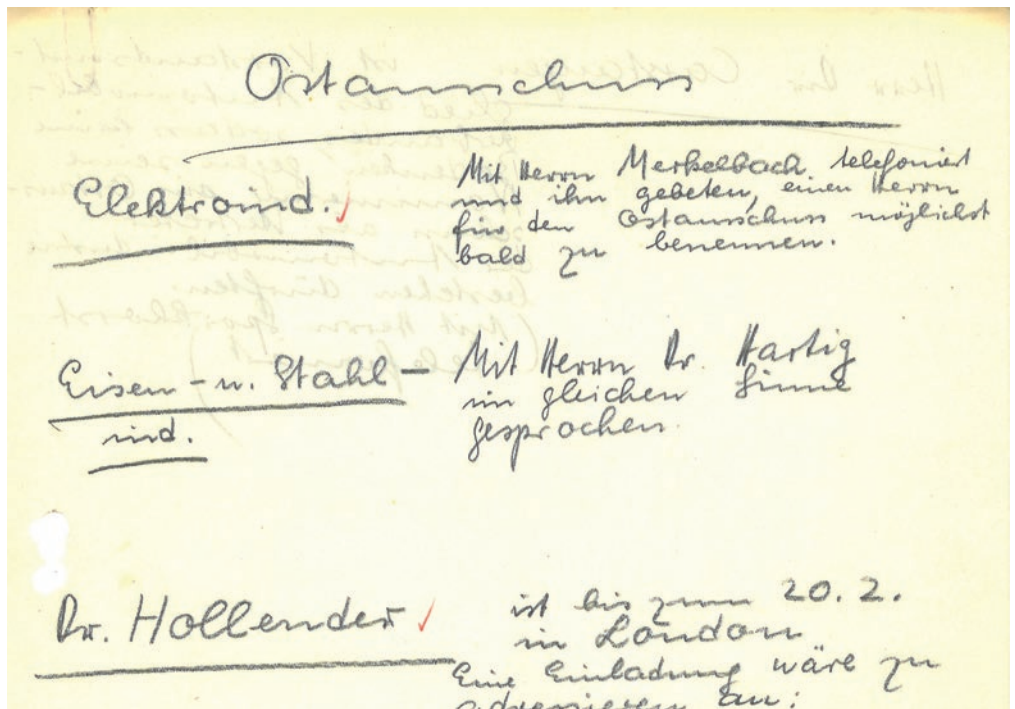 Ostausschuss
Elektroind.
Mit Herrn Merkelbach telefoniert
und ihn gebeten, einen Herrn
für den Ostausschuss möglichst
bald zu benennen.
Eisen- u. Stahl-
ind.
Mit Herrn Dr. Hartig
im gleichen Sinne
gesprochen.
Dr. Hollender
ist bis zum 20. 2.
in London
Eine Einladung wäre zu
adressieren an: